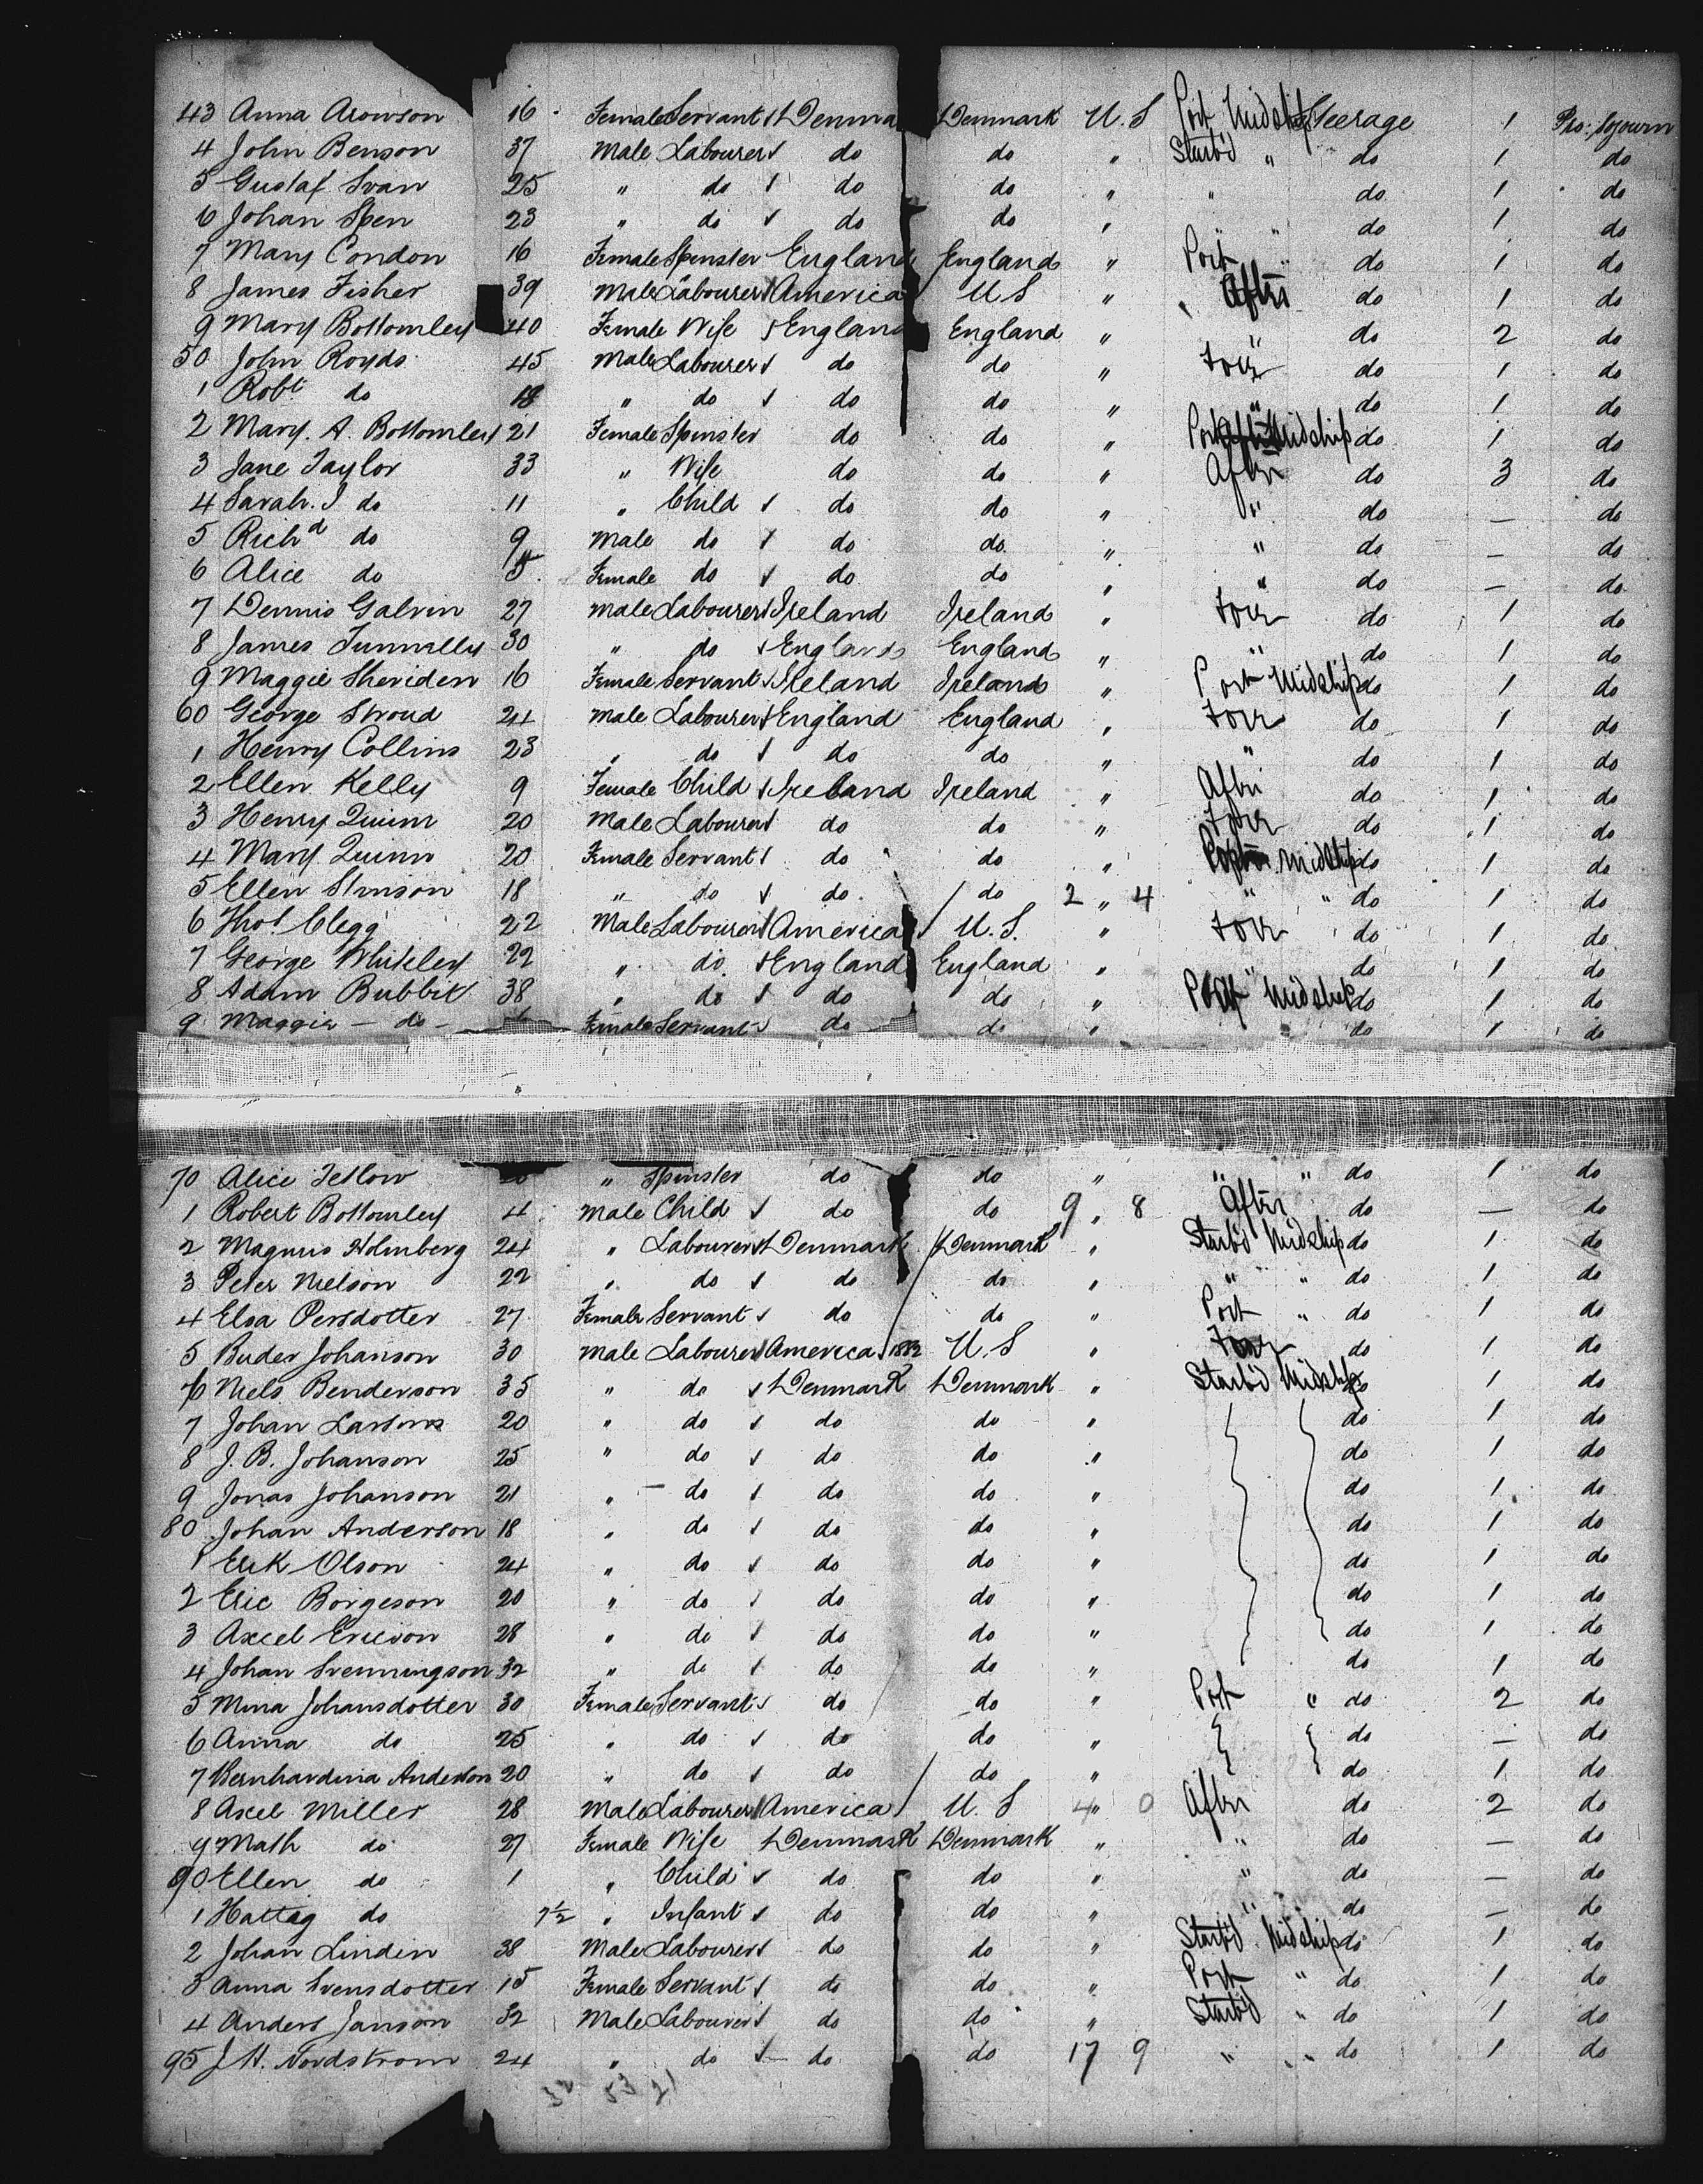 43 Anna Aronson 16 Female Servant Denma Denmark U.S Port Midship Steerage 1 Pro: Sojourn
4 John Benson 37 Male Labourer do do " Starb'd " do 1 do
5 Gustaf Svan 25 " do do do " " do 1 do
6 Johan Spen 23 " do do do " " " do 1 do
7 Mary Condon 16 Female Spinster England England " Port " do 1 do
8 James Fisher 39 Male Labourer America U S " After do 1 do
9 Mary Bottomley 40 Female Wife England England " " do 2 do
50 John Royds 45 Male Labourer do do " Forr do 1 do
1 Robt do 18 " do do do " " do 1 do
2 Mary. A. Bottomley 21 Female Spinster do do " Port Midship do 1 do
3 Jane Taylor 33 " Wife do do " After do 3 do
4 Sarah. J do 11 " Child do do " " do — do
5 Richd do 9 Male do do do " " do — do
6 Alice do 5 Female do do do " " do — do
7 Dennis Galvin 27 Male Labourer Ireland Ireland " Forr do 1 do
8 James Tunnelly 30 " do England England " " do 1 do
9 Maggie Sheriden 16 Female Servant Ireland Ireland " Port Midship do 1 do
60 George Stroud 24 Male Labourer England England " Forr do 1 do
1 Henry Collins 23 " do do do " " do 1 do
2 Ellen Kelly 9 Female Child Ireland Ireland " After do 1 do
3 Henry Quinn 20 Male Labourer do do " Forr do 1 do
4 Mary Quinn 20 Female Servant do do " Port Midship do 1 do
5 Ellen Stinson 18 " do do do 2 " 4 " " do 1 do
6 Thos Clegg 22 Male Labourer America U.S. " Forr do 1 do
7 George Whiteley 22 " do England England " " do 1 do
8 Adam Bubbit 38 " do do do " Port Midship do 1 do
9 Maggie — do — Female Servant do do " do 1 do
70 Alice Tetlow " Spinster do do " " " do 1 do
1 Robert Bottomley 4 Male Child do do 9 " 8 After do — do
2 Magnus Holmberg 24 " Labourer Denmark Denmark " Starb'd Midship do 1 do
3 Peter Nielson 22 " do do do " " " do 1 do
4 Elsa Persdotter 27 Female Servant do do " Port " do 1 do
5 Buder Johanson 30 Male Labourer America 1882 U.S " Forr do 1 do
6 Niels Benderson 35 " do Denmark Denmark " Starb'd Midship do 1 do
7 Johan Larsons 20 " do do do " do 1 do
8 J. B. Johanson 25 " do do do " do 1 do
9 Jonas Johanson 21 " do do do " do 1 do
80 Johan Anderson 18 " do do do " do 1 do
1 Erik Olson 24 " do do do " do 1 do
2 Eric Borgeson 20 " do do do " do 1 do
3 Axcel Ericson 28 " do do do " do 1 do
4 Johan Svenningson 32 " do do do " do 1 do
5 Mina Johansdotter 30 Female Servant do do " Port " do 2 do
6 Anna do 25 " do do do " do — do
7 Bernhardina Anderson 20 " do do do " do 1 do
8 Axel Miller 28 Male Labourer America U.S 4 " 0 After do 2 do
9 Math do 27 Female Wife Denmark Denmark " " do — do
90 Ellen do 1 " Child do do " " do — do
1 Hattag do 7½ " Infant do do " " do — do
2 Johan Lindin 38 Male Labourer do do " Starb'd Midship do 1 do
3 Anna Svensdotter 15 Female Servant do do " Port " do 1 do
4 Anders Janson 32 Male Labourer do do " Starb'd " do 1 do
95 J.H. Nordstrom 24 " do do do 17 9 " " do 1 do
53 21